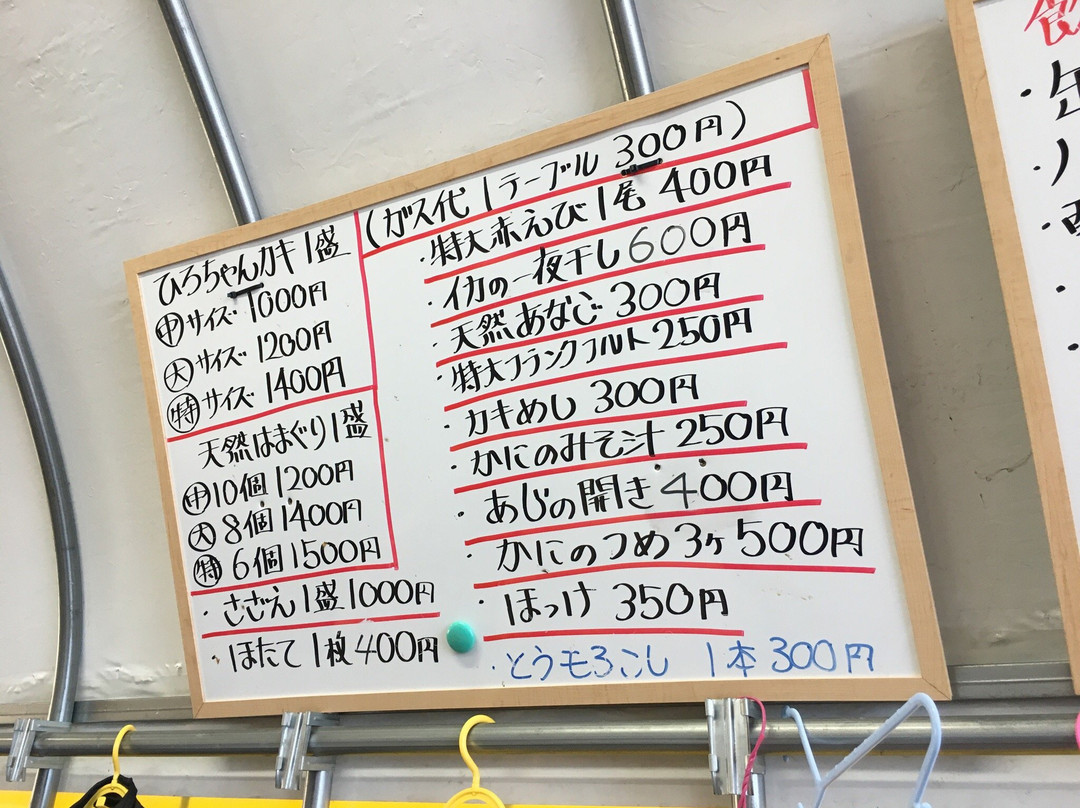 ひろちゃんカキ1盛
㊥サイズ 1000円
大サイズ 1200円
㊕サイズ 1400円
天然はまぐり1盛
㊥10個1200円
大8個1400円
㊕6個1500円
・さざえ1盛1000円
・ほたて1枚400円
(ガス代1テーブル300円)
・特大赤えび1尾400円
・イカの一夜干し600円
・天然あなご300円
・特大フランクフルト250円
・カキめし300円
・かにのみそ汁250円
・あじの開き400円
・かにのつめ3ヶ500円
・ほっけ350円
・とうモろこし 1本300円